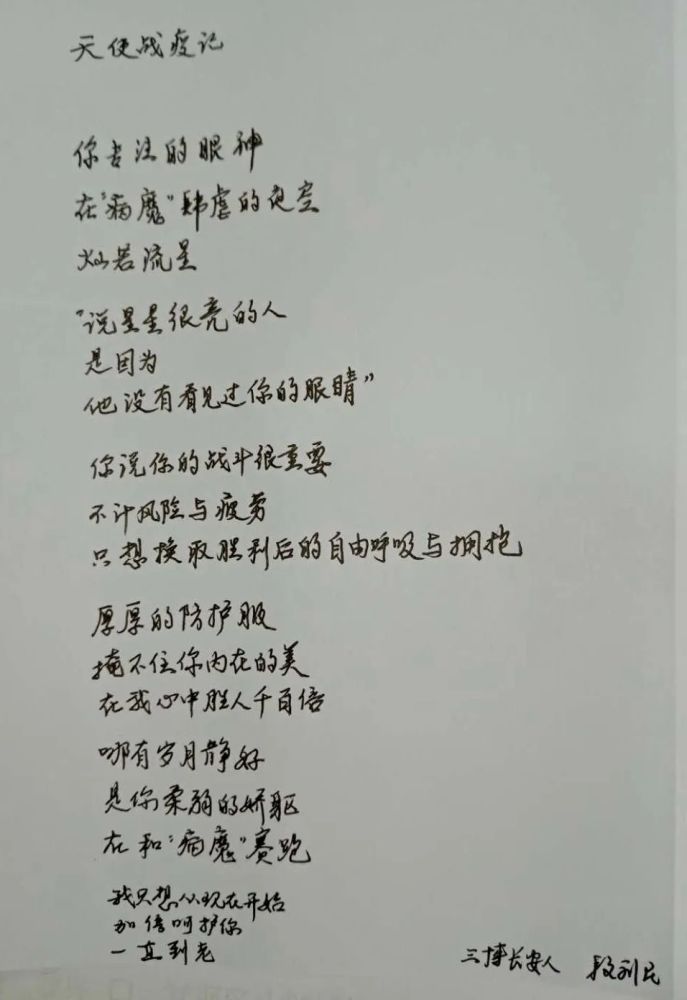 天使战疫记
你专注的眼神
在“病魔”肆虐的夜空
灿若流星
“说星星很亮的人
是因为
他没有看见过你的眼睛”
你说你的战斗很重要
不计风险与疲劳
只想换取胜利后的自由呼吸与拥抱
厚厚的防护服
掩不住你内在的美
在我心中胜人千百倍
哪有岁月静好
是你柔弱的娇躯
在和“病魔”赛跑
我只想从现在开始
加倍呵护你
一直到老
三博长安人 段利民